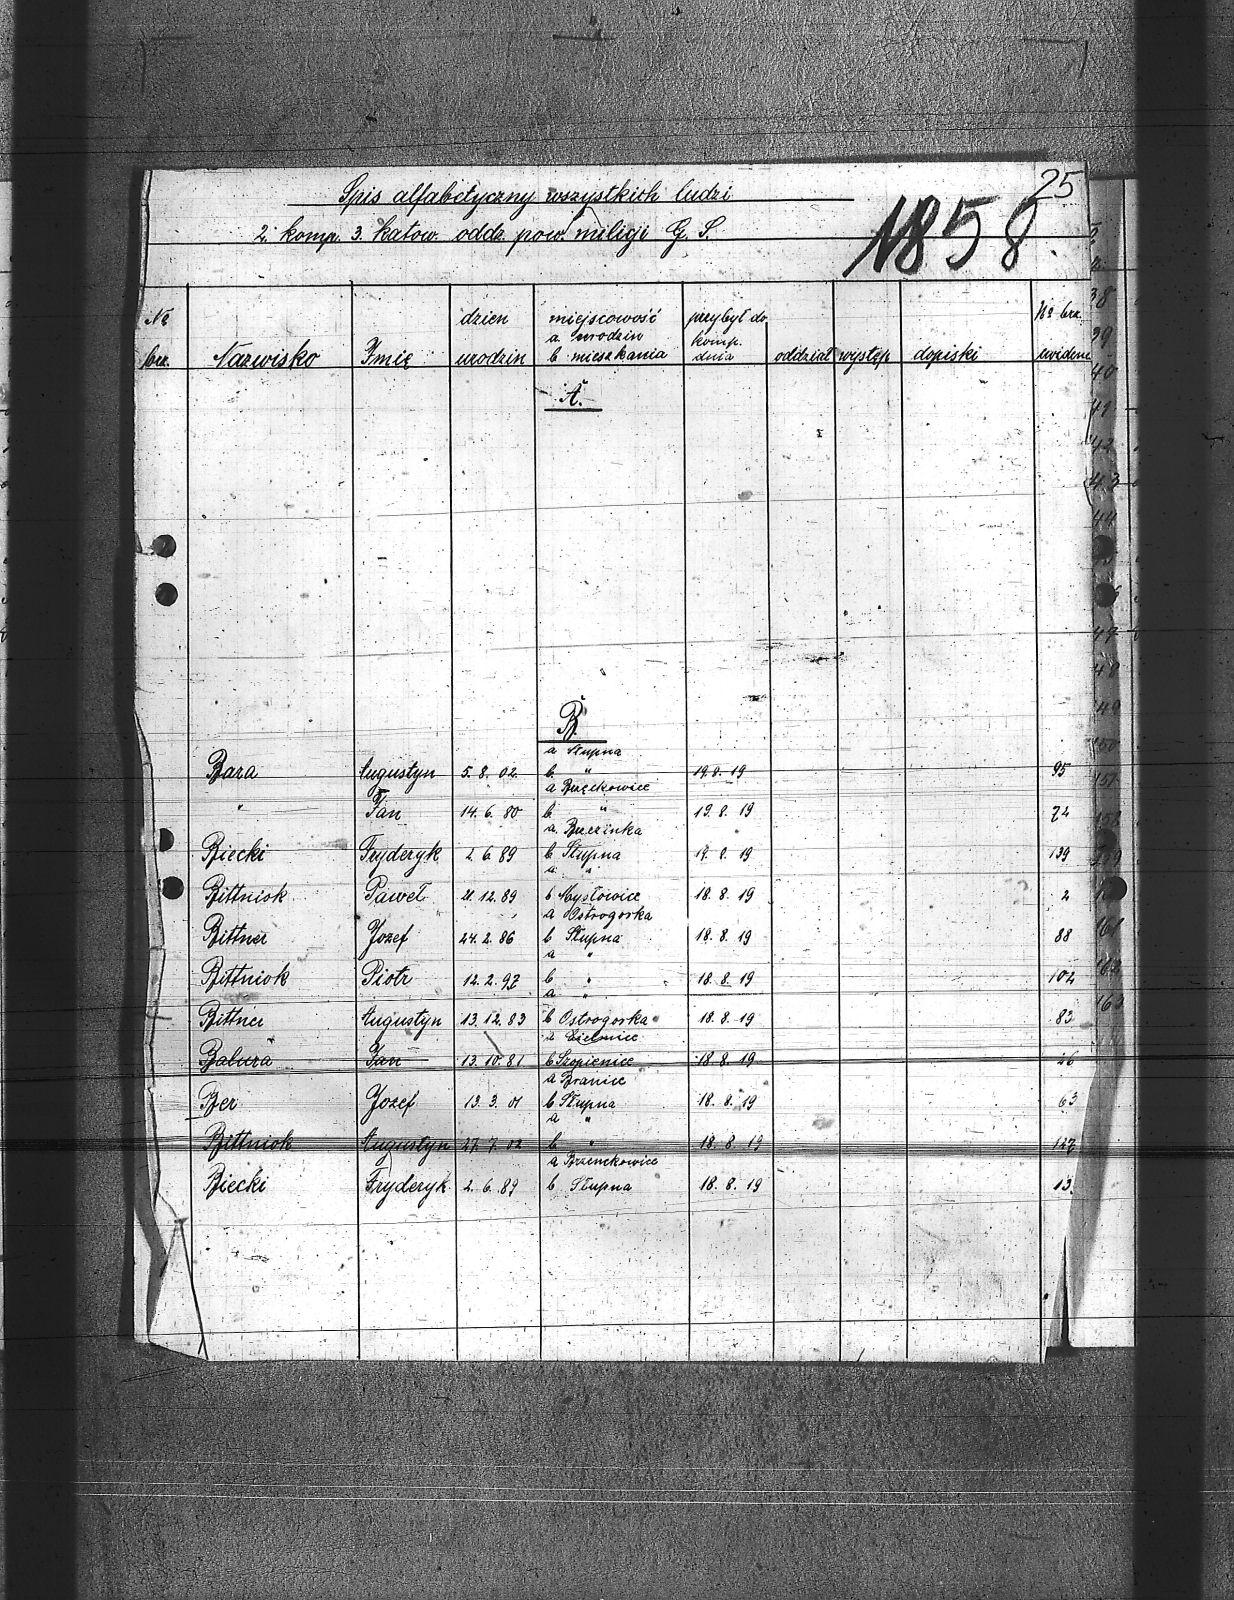 25
Spis alfabetyczny wszystkich ludzi
2. komp. 3. katow. oddz. pow. milicji G. S.
1858.
№ brz. Nazwisko Imię dzien urodzin miejscowość a. urodzin b mieszkania przybył do komp. dnia oddział występ dopiski № brz. ewidenc
A.
B.
a Słupna
Bara Augustyn 5.8.02 b " 19.8.19 95
a Brzęckowice
" Jan 14.6.80 b " 19.8.19 74
a Brzezinka
Biecki Fryderyk 2.6.89 b Słupna 19.8.19 139
a "
Bittniok Paweł 21.12.89 b Mysłowice 18.8.19 2
a Ostrogorka
Bittner Jozef 24.2.86 b Słupna 18.8.19 88
a "
Bittniok Piotr 12.2.97 b " 18.8.19 102
a "
Bittner Augustyn 13.12.83 b Ostrogorka 18.8.19 83
a
Babura Jan 13.10.81 b Szopienice 18.8.19 26
a Branice
Ber Jozef 13.3.01 b Słupna 18.8.19 63
a "
Bittniok Augustyn 27.7.02 b " 18.8.19 127
a Brzenckowice
Biecki Fryderyk 2.6.89 b Słupna 18.8.19 13.
38
39
40
41
42
43
44
47
48
49
150
151
152
161
162